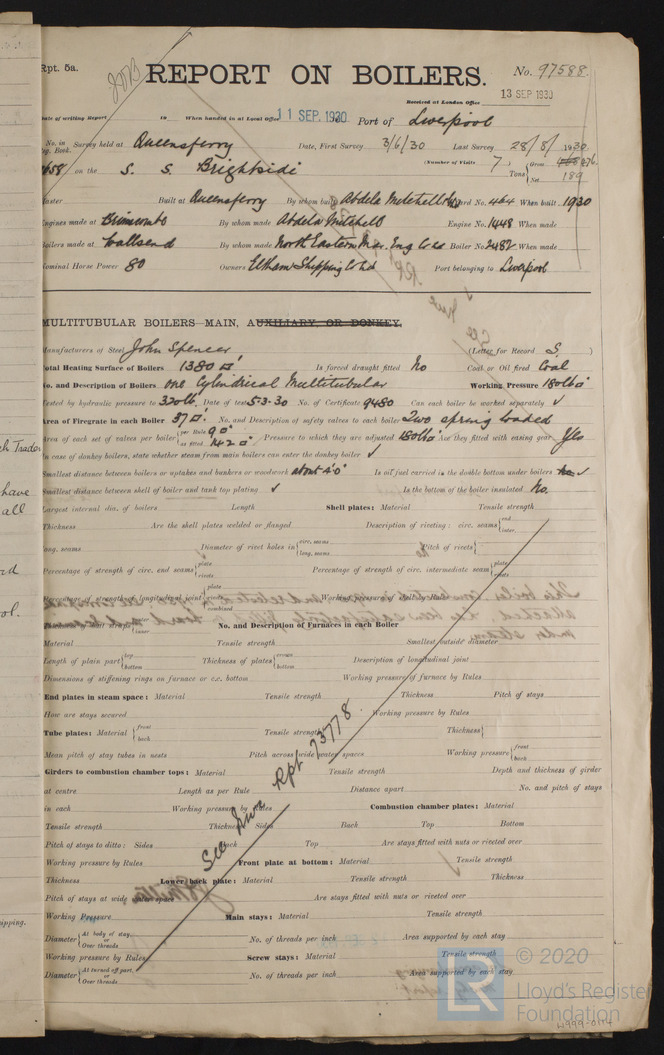 Rpt. 5a.
REPORT ON BOILERS.
No. 97588
Received at London Office 13 SEP 1930
Date of writing Report 19 When handed in at Local Office 11 SEP. 1930 Port of Liverpool
No. in Survey held at Queensferry Date, First Survey 3/6/30 Last Survey 28/8/1930
Reg. Book. (Number of Visits 7) Gross 476
on the S. S. Brightside Tons Net 189
Master Built at Queensferry By whom built Abdela Mitchell Ld Yard No. 464 When built 1930
Engines made at Brimscombe By whom made Abdela Mitchell Engine No. 1448 When made
Boilers made at Wallsend By whom made North Eastern Mar. Eng Co Ld Boiler No. 2482 When made
Nominal Horse Power 80 Owners Eltham Shipping Co Ltd Port belonging to Liverpool
MULTITUBULAR BOILERS MAIN, AUXILIARY, OR DONKEY.
Manufacturers of Steel John Spencer (Letter for Record S.)
Total Heating Surface of Boilers 1380 □' Is forced draught fitted No Coal or Oil fired Coal
No. and Description of Boilers one Cylindrical Multitubular Working Pressure 180 lbs
Tested by hydraulic pressure to 320 lb. Date of test 5-3-30 No. of Certificate 9480 Can each boiler be worked separately ✓
Area of Firegrate in each Boiler 37 □'. No. and Description of safety valves to each boiler Two spring loaded
Area of each set of valves per boiler per Rule 9.0" as fitted 14.2 □" Pressure to which they are adjusted 180 lbs Are they fitted with easing gear Yes
In case of donkey boilers, state whether steam from main boilers can enter the donkey boiler ✓
Smallest distance between boilers or uptakes and bunkers or woodwork about 4'0" Is oil fuel carried in the double bottom under boilers no ✓
Smallest distance between shell of boiler and tank top plating ✓ Is the bottom of the boiler insulated No.
Largest internal dia. of boilers Length Shell plates: Material Tensile strength
Thickness Are the shell plates welded or flanged Description of riveting: circ. seams end inter.
long. seams Diameter of rivet holes in circ. seams long. seams Pitch of rivets
Percentage of strength of circ. end seams plate rivets Percentage of strength of circ. intermediate seam plate rivets
Percentage of strength of longitudinal joint plate rivets combined Working pressure of shell by Rules
No. and Description of Furnaces in each Boiler
Material Tensile strength Smallest outside diameter
Length of plain part top bottom Thickness of plates crown bottom Description of longitudinal joint
Dimensions of stiffening rings on furnace or c.c. bottom Working pressure of furnace by Rules
End plates in steam space: Material Tensile strength Thickness Pitch of stays
How are stays secured Working pressure by Rules
Tube plates: Material front back Tensile strength Thickness
Mean pitch of stay tubes in nests Pitch across wide water spaces Working pressure front back
Girders to combustion chamber tops: Material Tensile strength Depth and thickness of girder
at centre Length as per Rule Distance apart No. and pitch of stays
in each Working pressure by Rules Combustion chamber plates: Material
Tensile strength Thickness: Sides Back Top Bottom
Pitch of stays to ditto: Sides Back Top Are stays fitted with nuts or riveted over
Working pressure by Rules Front plate at bottom: Material Tensile strength
Thickness Lower back plate: Material Tensile strength Thickness
Pitch of stays at wide water space Are stays fitted with nuts or riveted over
Working Pressure Main stays: Material Tensile strength
Diameter At body of stay, or Over threads No. of threads per inch Area supported by each stay
Working pressure by Rules Screw stays: Material Tensile strength
Diameter At turned off part, or Over threads No. of threads per inch Area supported by each stay
See Nwc Rpt 73778.
LR © 2020
Lloyd's Register
Foundation
W999-0174